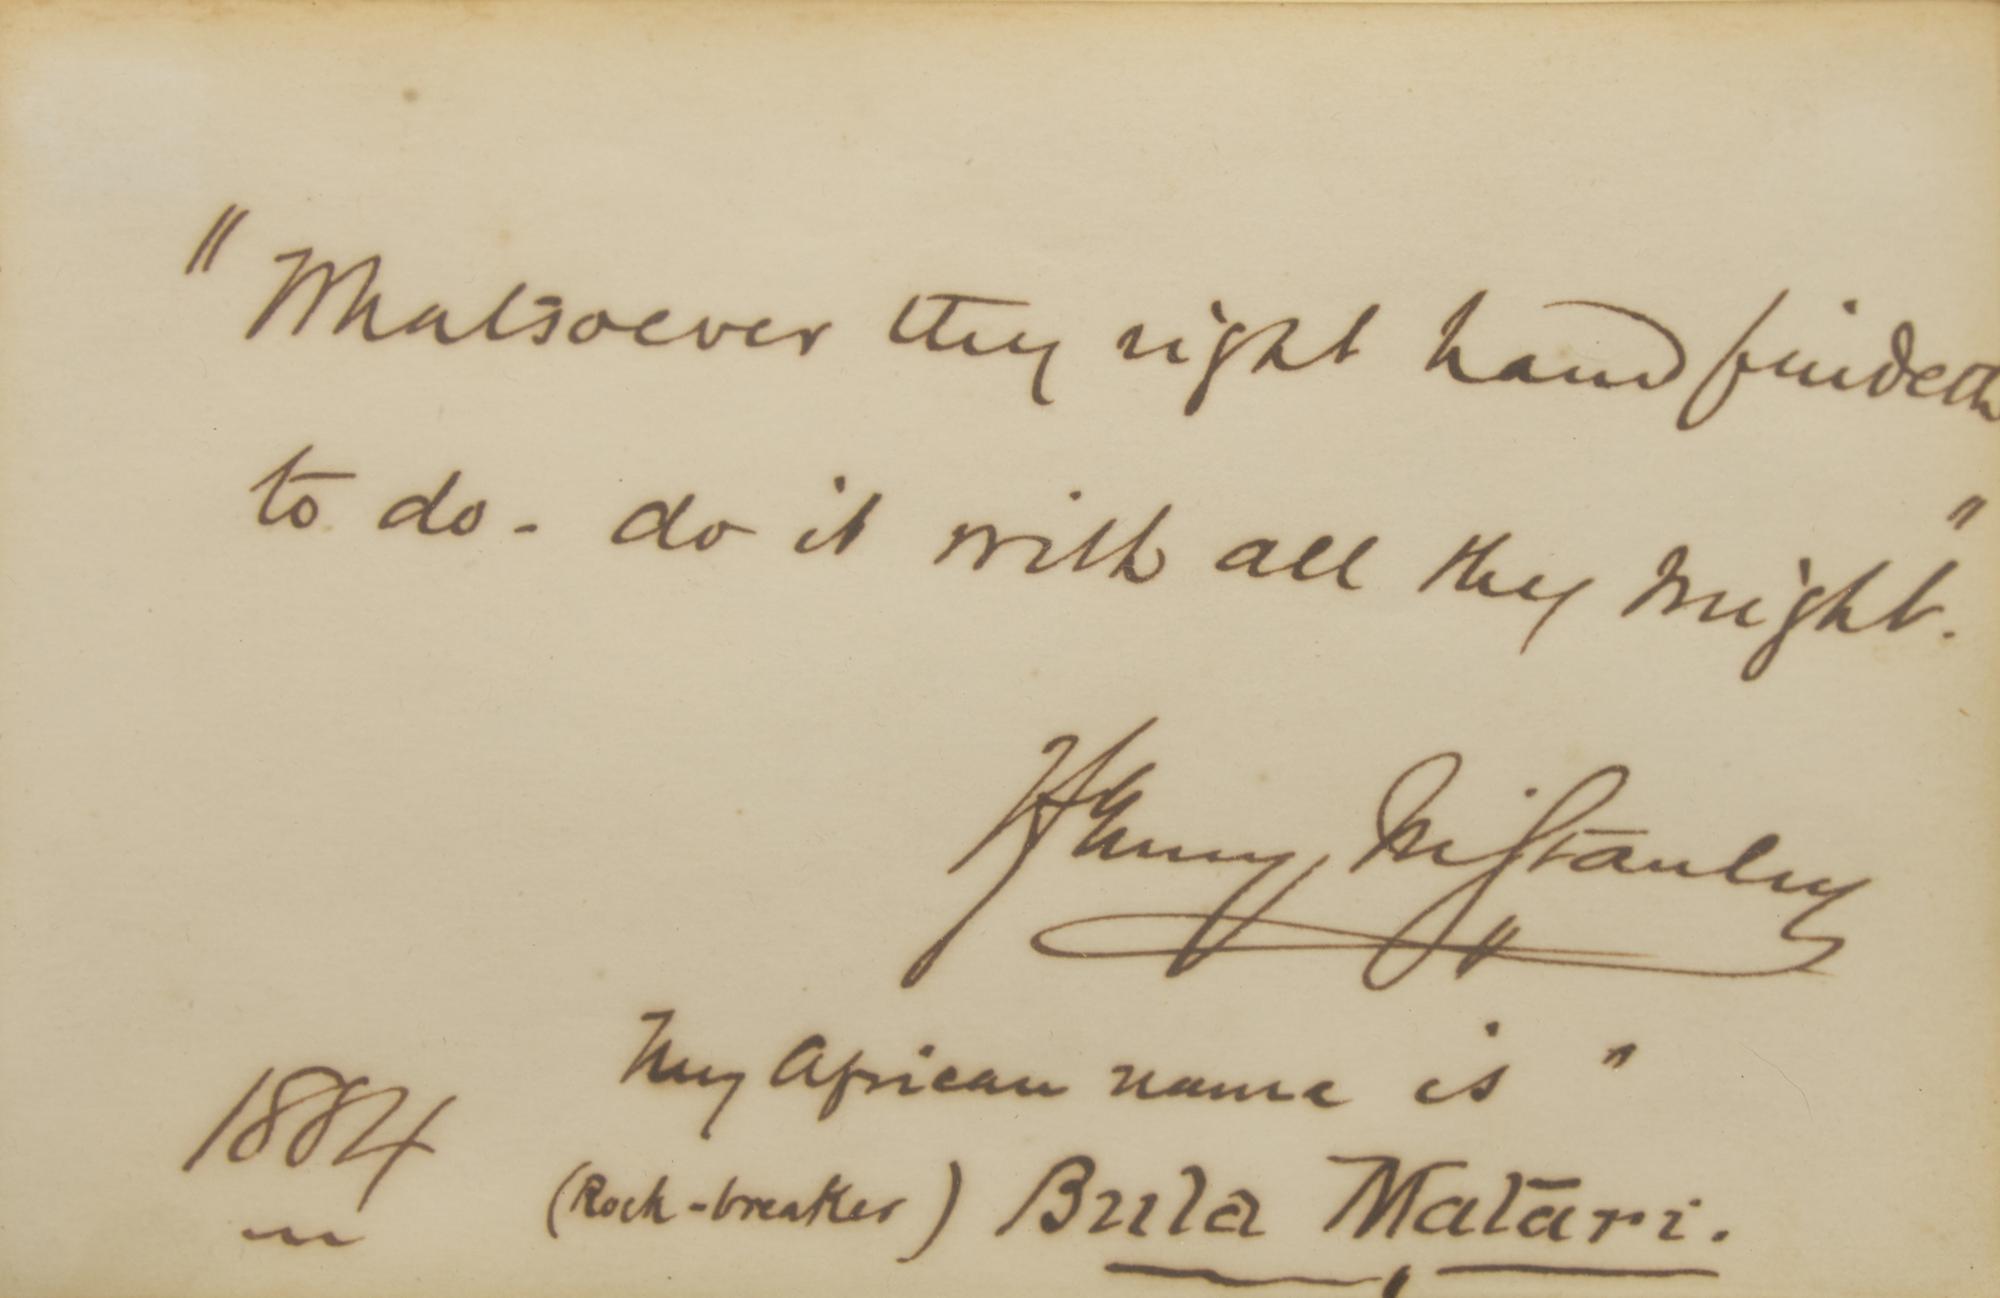 "Whatsoever thy right hand findeth
to do - do it with all thy might."
Henry M Stanley
My African name is "
1884 (Rock-breaker) Bula Matari.